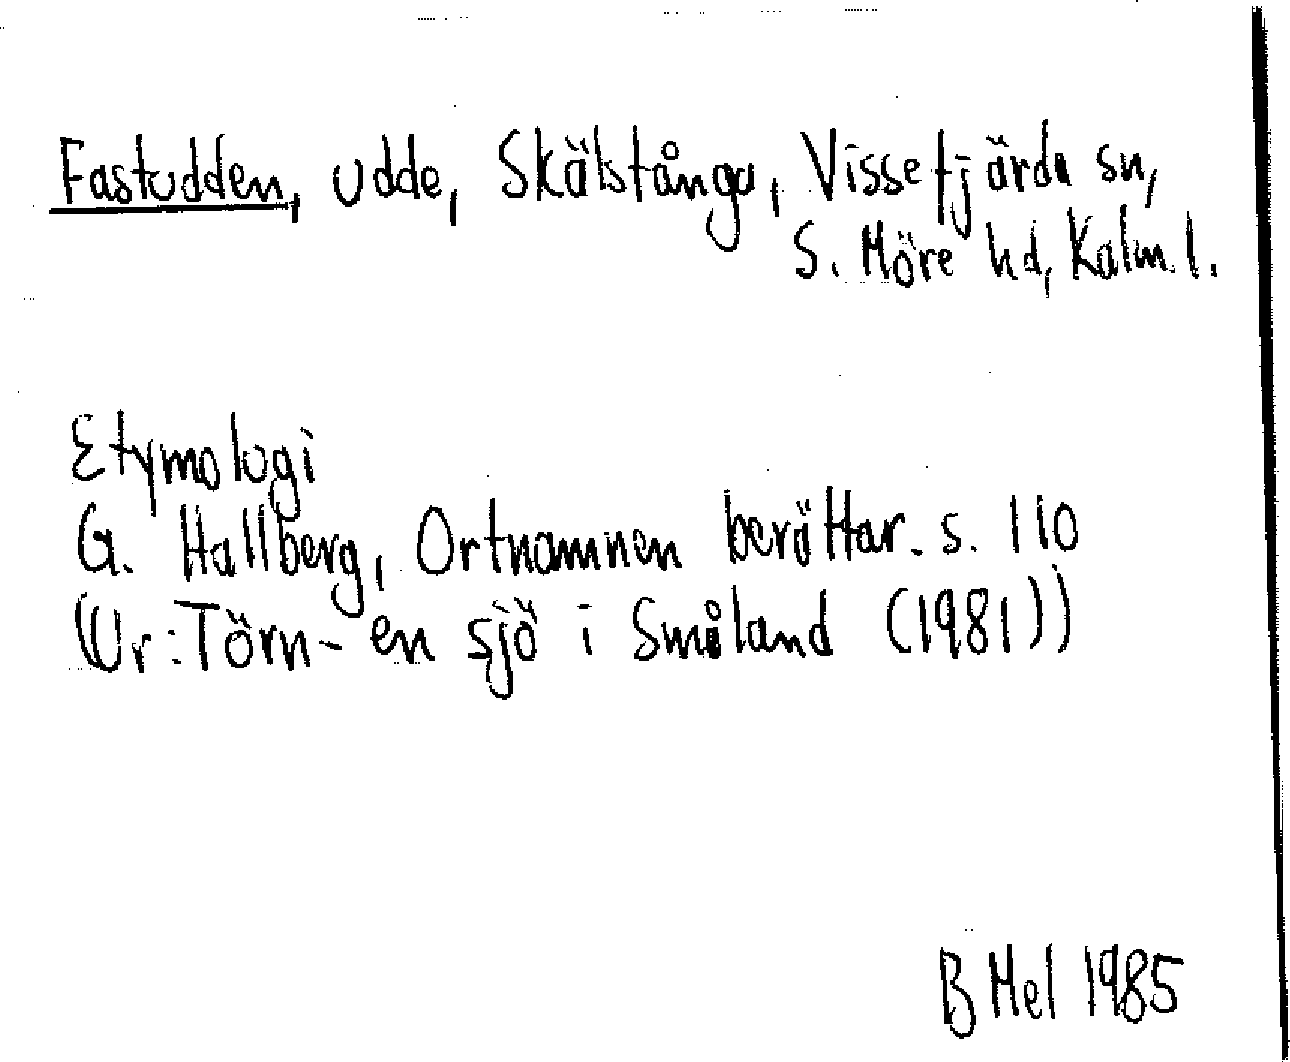 Fastudden, udde, Skälstånga, Vissefjärda sn,
S. Möre hd, Kalm. l.
Etymologi
G. Hallberg, Ortnamnen berättar. s. 110
(Ur: Törn- en sjö i Småland (1981))
B Mel 1985